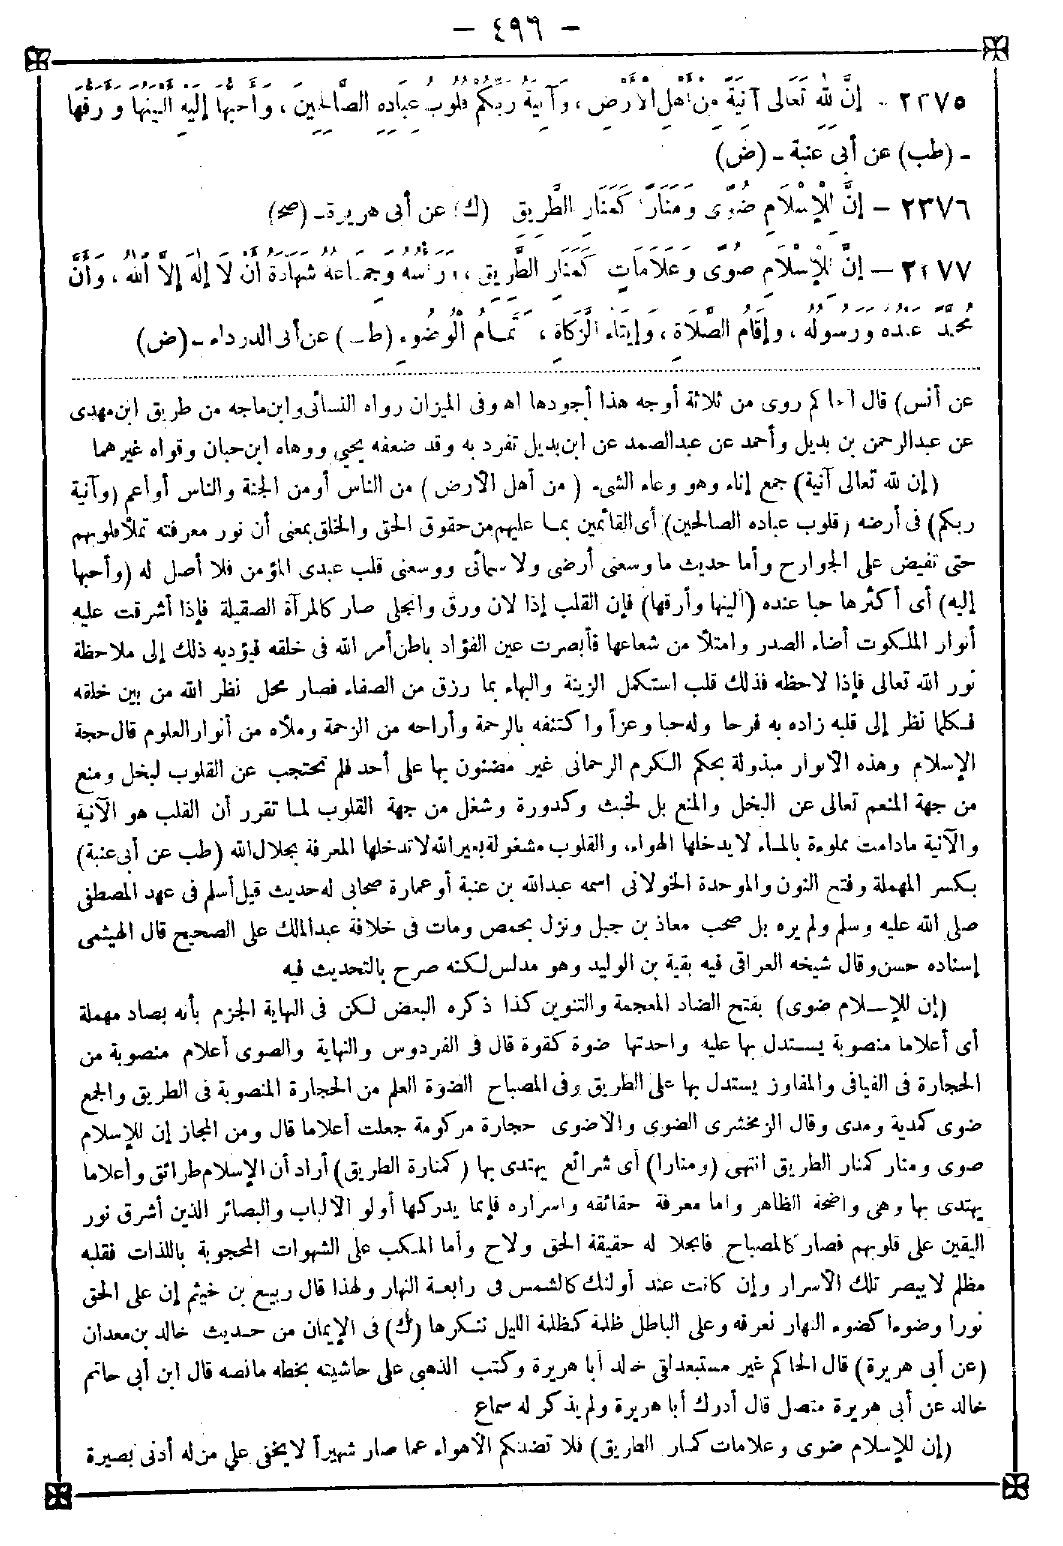 - ٤٩٦ -
٢٣٧٥ - إِنَّ لِلّٰهِ تَعَالَى آنِيَةً مِنْ أَهْلِ الْأَرْضِ ، وَآنِيَةُ رَبِّكُمْ قُلُوبُ عِبَادِهِ الصَّالِحِينَ ، وَأَحَبُّهَا إِلَيْهِ أَلْيَنُهَا وَأَرَقُّهَا
- (طب) عن أبى عنبة - (ض)
٢٣٧٦ - إِنَّ لِلْإِسْلَامِ ضُوًى وَمَنَارًا كَمَنَارِ الطَّرِيقِ (ك) عن أبى هريرة - (صح)
٢٣٧٧ - إِنَّ لِلْإِسْلَامِ صُوًى وَعَلَامَاتٍ كَمَنَارِ الطَّرِيقِ ، وَرَأْسُهُ وَجِمَاعُهُ شَهَادَةُ أَنْ لَا إِلٰهَ إِلَّا اللّٰهُ ، وَأَنَّ
مُحَمَّدًا عَبْدُهُ وَرَسُولُهُ ، وَإِقَامُ الصَّلَاةِ ، وَإِيتَاءُ الزَّكَاةِ ، وَتَمَامُ الْوُضُوءِ (طب) عن أبى الدرداء - (ض)
عن أنس) قال الحاكم روى من ثلاثة أوجه هذا أجودها اه وفى الميزان رواه النسائى وابن ماجه من طريق ابن مهدى
عن عبدالرحمن بن بديل وأحمد عن عبدالصمد عن ابن بديل تفرد به وقد ضعفه يحيى ووهاه ابن حبان وقواه غيرهما
(إن لله تعالى آنية) جمع إناء وهو وعاء الشىء (من أهل الأرض) من الناس أو من الجنة والناس أو أعم (وآنية
ربكم) فى أرضه (قلوب عباده الصالحين) أى القائمين بما عليهم من حقوق الحق والخلق بمعنى أن نور معرفته تملأ قلوبهم
حتى تفيض على الجوارح وأما حديث ما وسعنى أرضى ولا سمائى ووسعنى قلب عبدى المؤمن فلا أصل له (وأحبها
إليه) أى أكثرها حبا عنده (ألينها وأرقها) فإن القلب إذا لان ورق وانجلى صار كالمرآة الصقيلة فإذا أشرقت عليه
أنوار الملكوت أضاء الصدر وامتلأ من شعاعها فأبصرت عين الفؤاد باطن أمر الله فى خلقه فيؤديه ذلك إلى ملاحظة
نور الله تعالى فإذا لاحظه فذلك قلب استكمل الزينة والبهاء بما رزق من الصفاء فصار محل نظر الله من بين خلقه
فكلما نظر إلى قلبه زاده به فرحا وله حبا وعزاً واكتنفه بالرحمة وأراحه من الزحمة وملأه من أنوار العلوم قال حجة
الإسلام وهذه الأنوار مبذولة بحكم الكرم الرحمانى غير مضنون بها على أحد فلم تحتجب عن القلوب لبخل ومنع
من جهة المنعم تعالى عن البخل والمنع بل لخبث وكدورة وشغل من جهة القلوب لما تقرر أن القلب هو الآنية
والآنية مادامت مملوءة بالماء لا يدخلها الهواء، والقلوب مشغولة بغير الله لا تدخلها المعرفة بجلال الله (طب عن أبى عنبة)
بكسر المهملة وفتح النون والموحدة الخولانى اسمه عبدالله بن عنبة أو عمارة صحابى له حديث قيل أسلم فى عهد المصطفى
صلى الله عليه وسلم ولم يره بل صحب معاذ بن جبل ونزل بحمص ومات فى خلافة عبدالملك على الصحيح قال الهيثمى
إسناده حسن وقال شيخه العراقى فيه بقية بن الوليد وهو مدلس لكنه صرح بالتحديث فيه
(إن للإسلام ضوى) بفتح الضاد المعجمة والتنوين كذا ذكره البعض لكن فى النهاية الجزم بأنه بصاد مهملة
أى أعلاما منصوبة يستدل بها عليه واحدتها ضوة كقوة قال فى الفردوس والنهاية والصوى أعلام منصوبة من
الحجارة فى الفيافى والمفاوز يستدل بها على الطريق وفى المصباح الضوة العلم من الحجارة المنصوبة فى الطريق والجمع
ضوى كمدية ومدى وقال الزمخشرى الضوى والأضوى حجارة مركومة جعلت أعلاما قال ومن المجاز إن للإسلام
صوى ومنار كمنار الطريق انتهى (ومنارا) أى شرائع يهتدى بها (كمنارة الطريق) أراد أن الإسلام طرائق وأعلاما
يهتدى بها وهى واضحة الظاهر وأما معرفة حقائقه وأسراره فإنما يدركها أولو الألباب والبصائر الذين أشرق نور
اليقين على قلوبهم فصار كالمصباح فانجلا له حقيقة الحق ولاح وأما المكب على الشهوات المحجوبة باللذات فقلبه
مظلم لا يبصر تلك الأسرار وإن كانت عند أولئك كالشمس فى رابعة النهار ولهذا قال ربيع بن خيثم إن على الحق
نورا وضوءا كضوء النهار نعرفه وعلى الباطل ظلمة كظلمة الليل ننكرها (ك) فى الإيمان من حديث خالد بن معدان
(عن أبى هريرة) قال الحاكم غير مستبعد لقى خالد أبا هريرة وكتب الذهبى على حاشيته بخطه مانصه قال ابن أبى حاتم
خالد عن أبى هريرة متصل قال أدرك أبا هريرة ولم يذكر له سماع
(إن للإسلام ضوى وعلامات كمنار الطريق) فلا تضلنكم الأهواء عما صار شهيراً لا يخفى على من له أدنى بصيرة